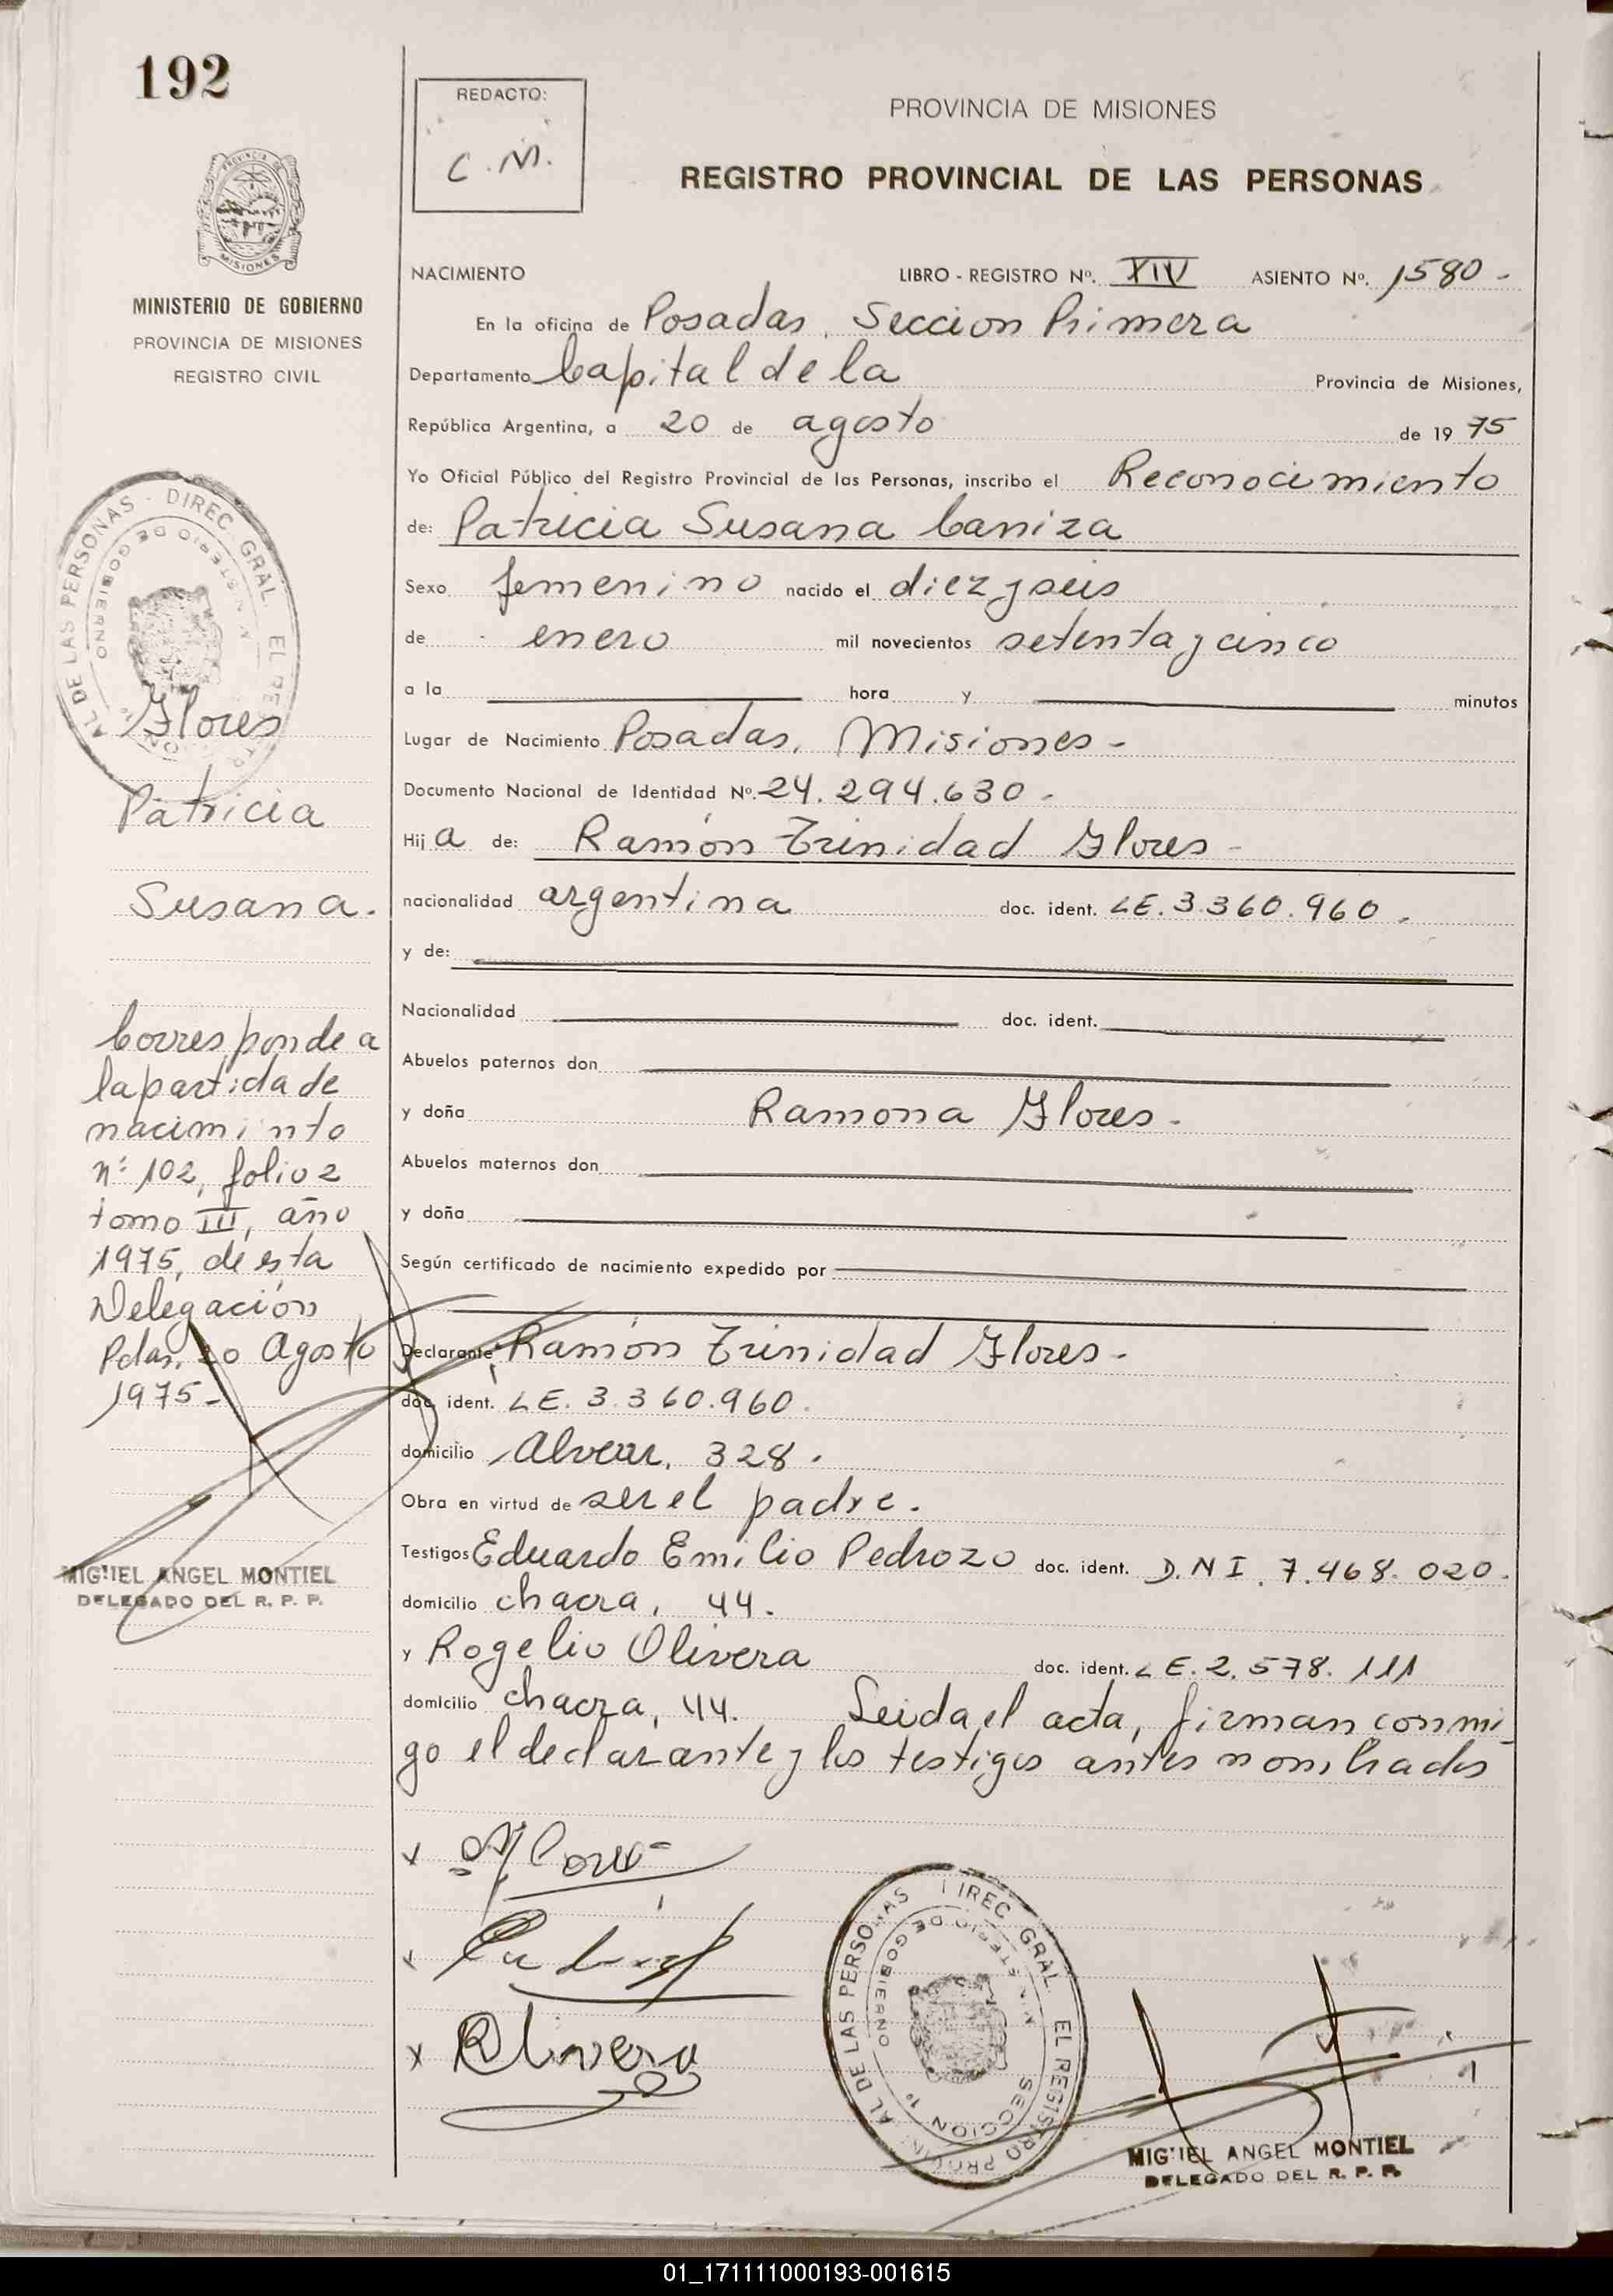 192
REDACTO:
C. M.
PROVINCIA DE MISIONES
REGISTRO PROVINCIAL DE LAS PERSONAS
PROVINCIA DE
MISIONES
MINISTERIO DE GOBIERNO
PROVINCIA DE MISIONES
REGISTRO CIVIL
NACIMIENTO LIBRO - REGISTRO Nº. XIV ASIENTO Nº. 1580 -
En la oficina de Posadas, Seccion Primera
Departamento Capital de la Provincia de Misiones,
República Argentina, a 20 de agosto de 19 75
Yo Oficial Público del Registro Provincial de las Personas, inscribo el Reconocimiento
de: Patricia Susana Caniza
Sexo femenino nacido el diez y seis
de enero mil novecientos setenta y cinco
a la hora y minutos
Lugar de Nacimiento Posadas, Misiones -
Documento Nacional de Identidad Nº. 24.294.630 -
Hij a de: Ramón Trinidad Flores -
nacionalidad argentina doc. ident. LE. 3.360.960 .
y de:
Nacionalidad doc. ident.
Abuelos paternos don
y doña Ramona Flores -
Abuelos maternos don
y doña
Según certificado de nacimiento expedido por
Declarante: Ramón Trinidad Flores -
doc. ident. LE. 3.360.960.
domicilio Alvear, 328 .
Obra en virtud de ser el padre .
Testigos Eduardo Emilio Pedrozo doc. ident. D.N I. 7.468.020.
domicilio chacra, 44.
y Rogelio Olivera doc. ident. LE. 2.578.111
domicilio chacra, 44. Leida el acta, firman conmi
go el declarante y los testigos antes nombrados
DIREC. GRAL. EL REGISTRO AL DE LAS PERSONAS
MINISTERIO DE GOBIERNO
Flores
Patricia
Susana.
Corresponde a
la partida de
nacimiento
nº 102, folio 2
tomo III, año
1975, de esta
Delegación
Pdas. 20 Agosto
1975 -
MIGUEL ANGEL MONTIEL
DELEGADO DEL R. P. P.
x
x
x Olivera
DIREC. GRAL. EL REGISTRO AL DE LAS PERSONAS
MINISTERIO DE GOBIERNO
SECCION 1º
MIGUEL ANGEL MONTIEL
DELEGADO DEL R. P. P.
01_171111000193-001615